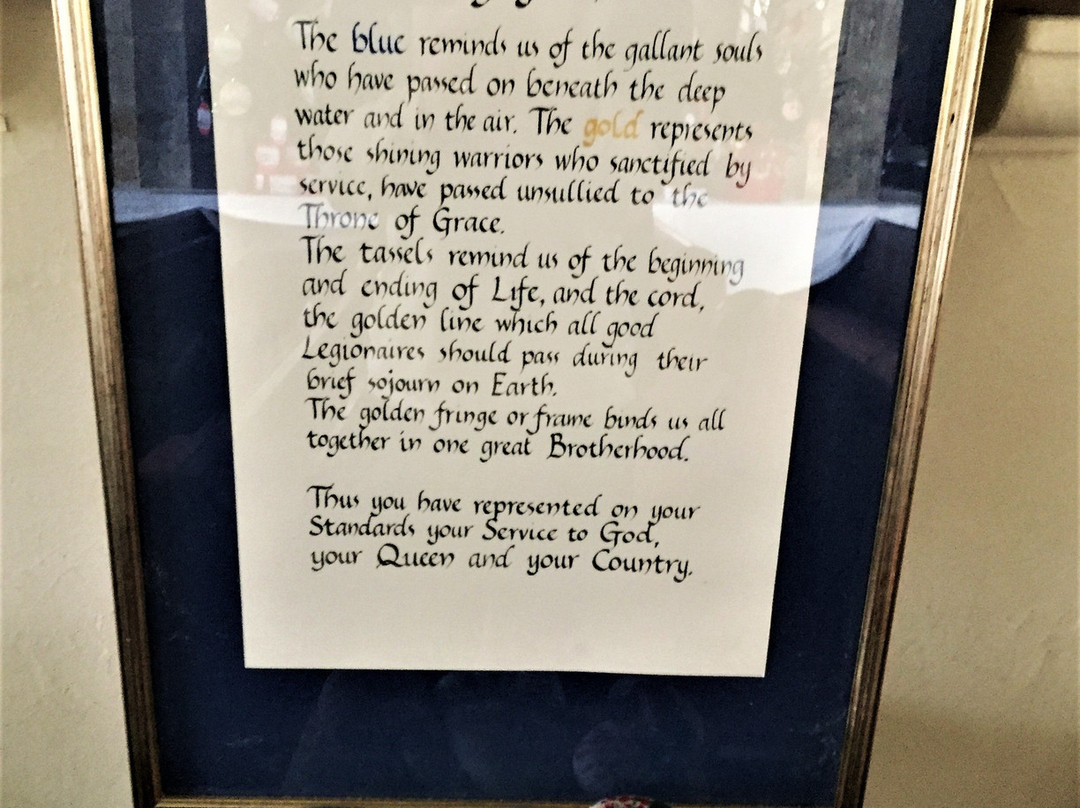 The blue reminds us of the gallant souls
who have passed on beneath the deep
water and in the air. The gold represents
those shining warriors who sanctified by
service, have passed unsullied to the
Throne of Grace.
The tassels remind us of the beginning
and ending of Life, and the cord,
the golden line which all good
Legionaires should pass during their
brief sojourn on Earth.
The golden fringe or frame binds us all
together in one great Brotherhood.
Thus you have represented on your
Standards your Service to God,
your Queen and your Country.